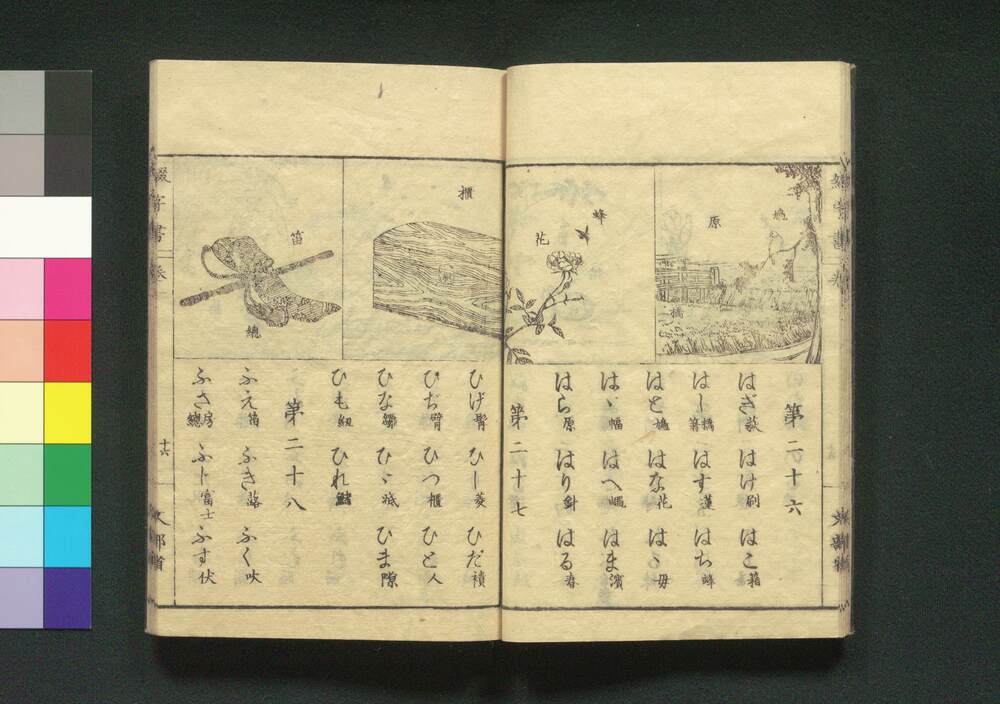 鳩
原
橋
蜂
花
第二十六
はぎ萩 はけ刷 はこ箱
はし橋箸 はす蓮 はち蜂
はと鳩 はな花 はゝ母
はゞ幅 はへ蝿 はま濱
はら原 はり針 はる春
第二十七
櫃
笛
總
ひげ髯 ひし菱 ひだ襀
ひぢ臂 ひつ櫃 ひと人
ひな雛 ひゞ ひま隙
ひも紐 ひれ鰭
第二十八
ふえ笛 ふき蕗 ふく吹
ふさ房總 ふし富士 ふす伏
綴字書 卷
十六
文部省